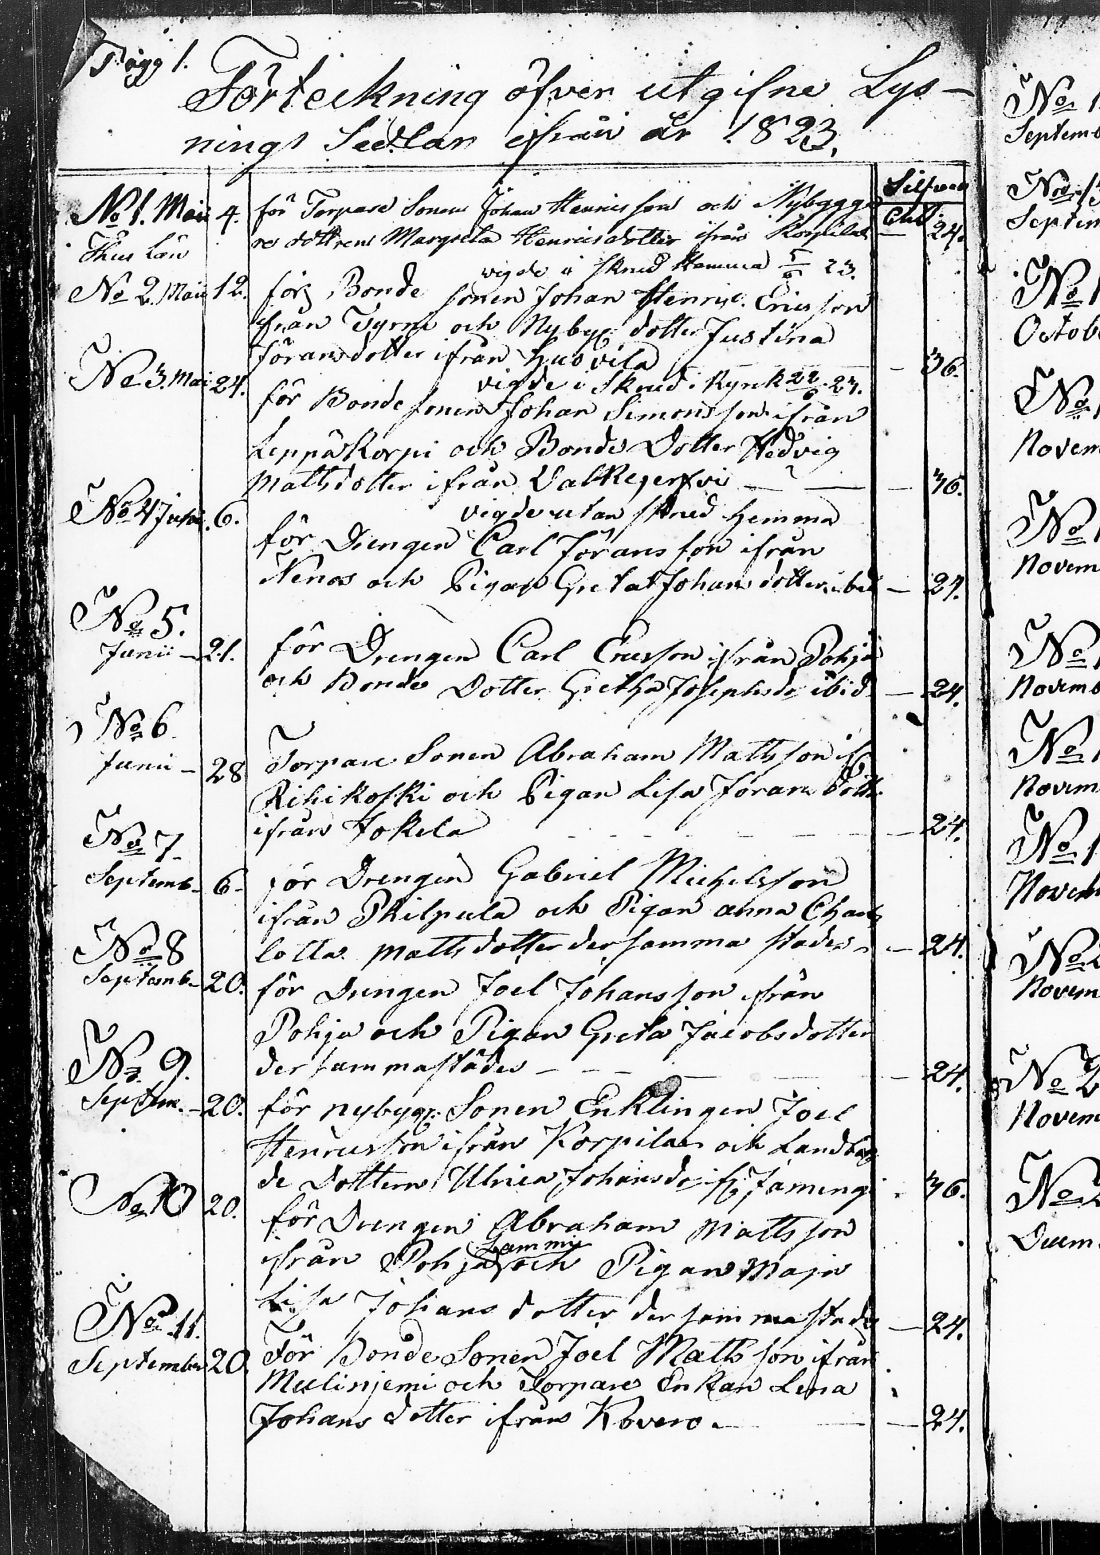 Förteckning öfver utgifne Lys-
nings Sedlar ifrån år 1823.
Silfver
No 1. Maii 4. för Torpare Sonen Johan Henricsson och Nybygga
res dottren Margreta Henricsdotter ifrån Korpilax — 24.
Län
vigde i Skrud Hemma 23.
No 2. Maii 12. för Bonde sonen Johan Henric Ericsson
ifrån Tyrni och Nybygg: dotter Justina
Göransdotter ifrån — 36.
vigde i Skrud i Kyrk 22/6 23.
No 3. Mai 24. för Bonde sonen Johan Simonsson ifrån
Leppäkorpi och Bonde Dotter Hedvig
Mathsdotter ifrån Valkejerfvi — 36.
vigde utan skrud hemma
No 4 Junii 6. för Drengen Carl Göransson ifrån
och Pigan Greta Johansdotter ibid — 24.
No 5.
Junii — 21. för Drengen Carl Ericsson ifrån Pohja
och Bonde Dotter Gretha Josephsd. ibid — 24.
No 6.
Junii — 28 Torpare Sonen Abraham Mathsson ifr
Rihikoski och Pigan Lisa Görans dott:
ifrån Jokela — 24.
No 7
Septemb. 6 för Drengen Gabriel Michelsson
ifrån Philpula och Pigan anna Char
lotta Mathsdotter dersamma stades — 24.
No 8
Septemb. 20. för Drengen Joel Johansson ifrån
Pohja och Pigan Greta Jacobsdotter
dersammastädes — 24.
No 9.
Septem. — 20. för nybygg: Sonen Enklingen Joel
Henricsson ifrån Korpilax och Landbon
de dottern Ulrica Johansd: ifr — 36.
No 10 20. för Drengen Abraham Mattsson
Lammi
ifrån Pohja och Pigan Maja
Lisa Johans dotter dersammastades — 24.
No 11.
September 20. För Bonde Sonen Joel Mathsson ifrån
Mulinjemi och Torpare Enkan Lena
Johans dotter ifrån Kovero. — 24.
No 1
Septemb
No 13
Septem
No 1
Octob
No 1
Novem
No 1
Novem
No 1
Novemb
No 1
Novem
No 1
Novem
No 2
Novem
No 2
Novem
No 2
Decem